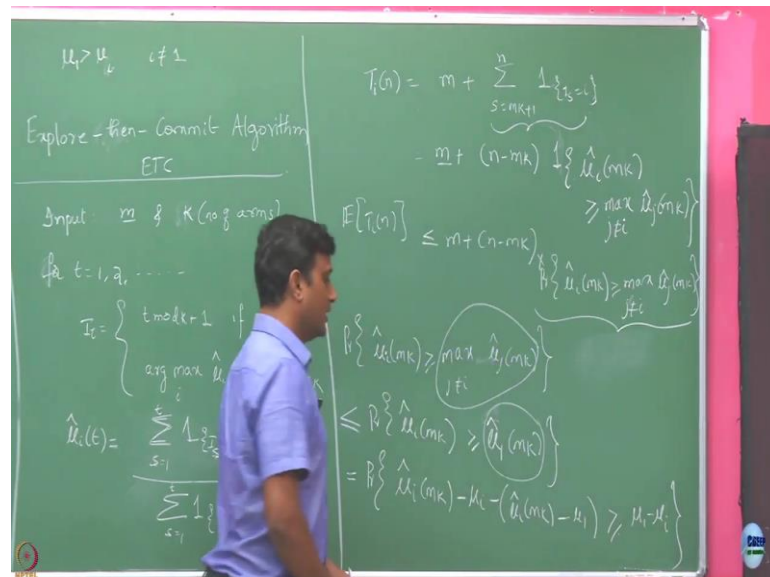 μ₁ > μᵢ i ≠ 1
Explore-then-Commit Algorithm
ETC
Input: m & K (no. of arms)
for t = 1, 2, .....
I_t = { t mod K + 1 if
arg max_i μ̂
μ̂ᵢ(t) = Σ_{s=1}^{t} 1{I_s
Σ_{s=1}^{t} 1{
Tᵢ(n) = m + Σ_{s=mK+1}^{n} 1{I_s = i}
= m + (n-mK) 1{ μ̂ᵢ(mK)
≥ max_{j≠i} μ̂ⱼ(mK) }
E[Tᵢ(n)] ≤ m + (n-mK)
Pr{ μ̂ᵢ(mK) ≥ max_{j≠i} μ̂ⱼ(mK) }
Pr{ μ̂ᵢ(mK) ≥ max_{j≠i} μ̂ⱼ(mK) }
≤ Pr{ μ̂ᵢ(mK) ≥ μ̂₁(mK) }
= Pr{ μ̂ᵢ(mK) - μᵢ - (μ̂₁(mK) - μ₁) ≥ μ₁ - μᵢ }
NPTEL
CDEEP